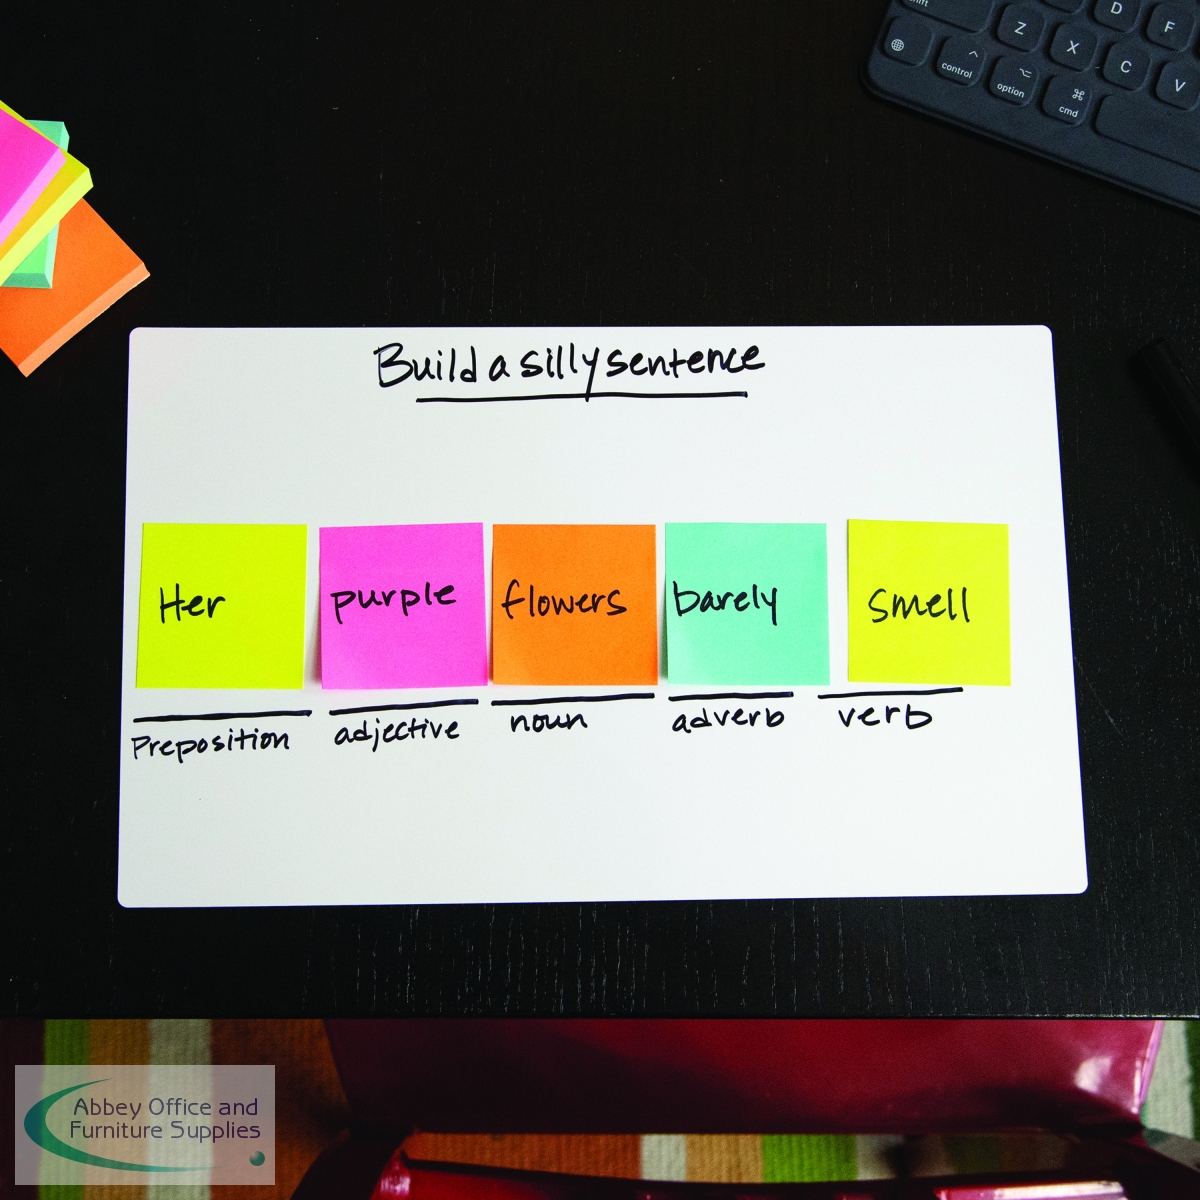 shift Z X C V D F
control option cmd
Build a silly sentence
Her purple flowers barely smell
Preposition adjective noun adverb verb
Abbey Office and
Furniture Supplies